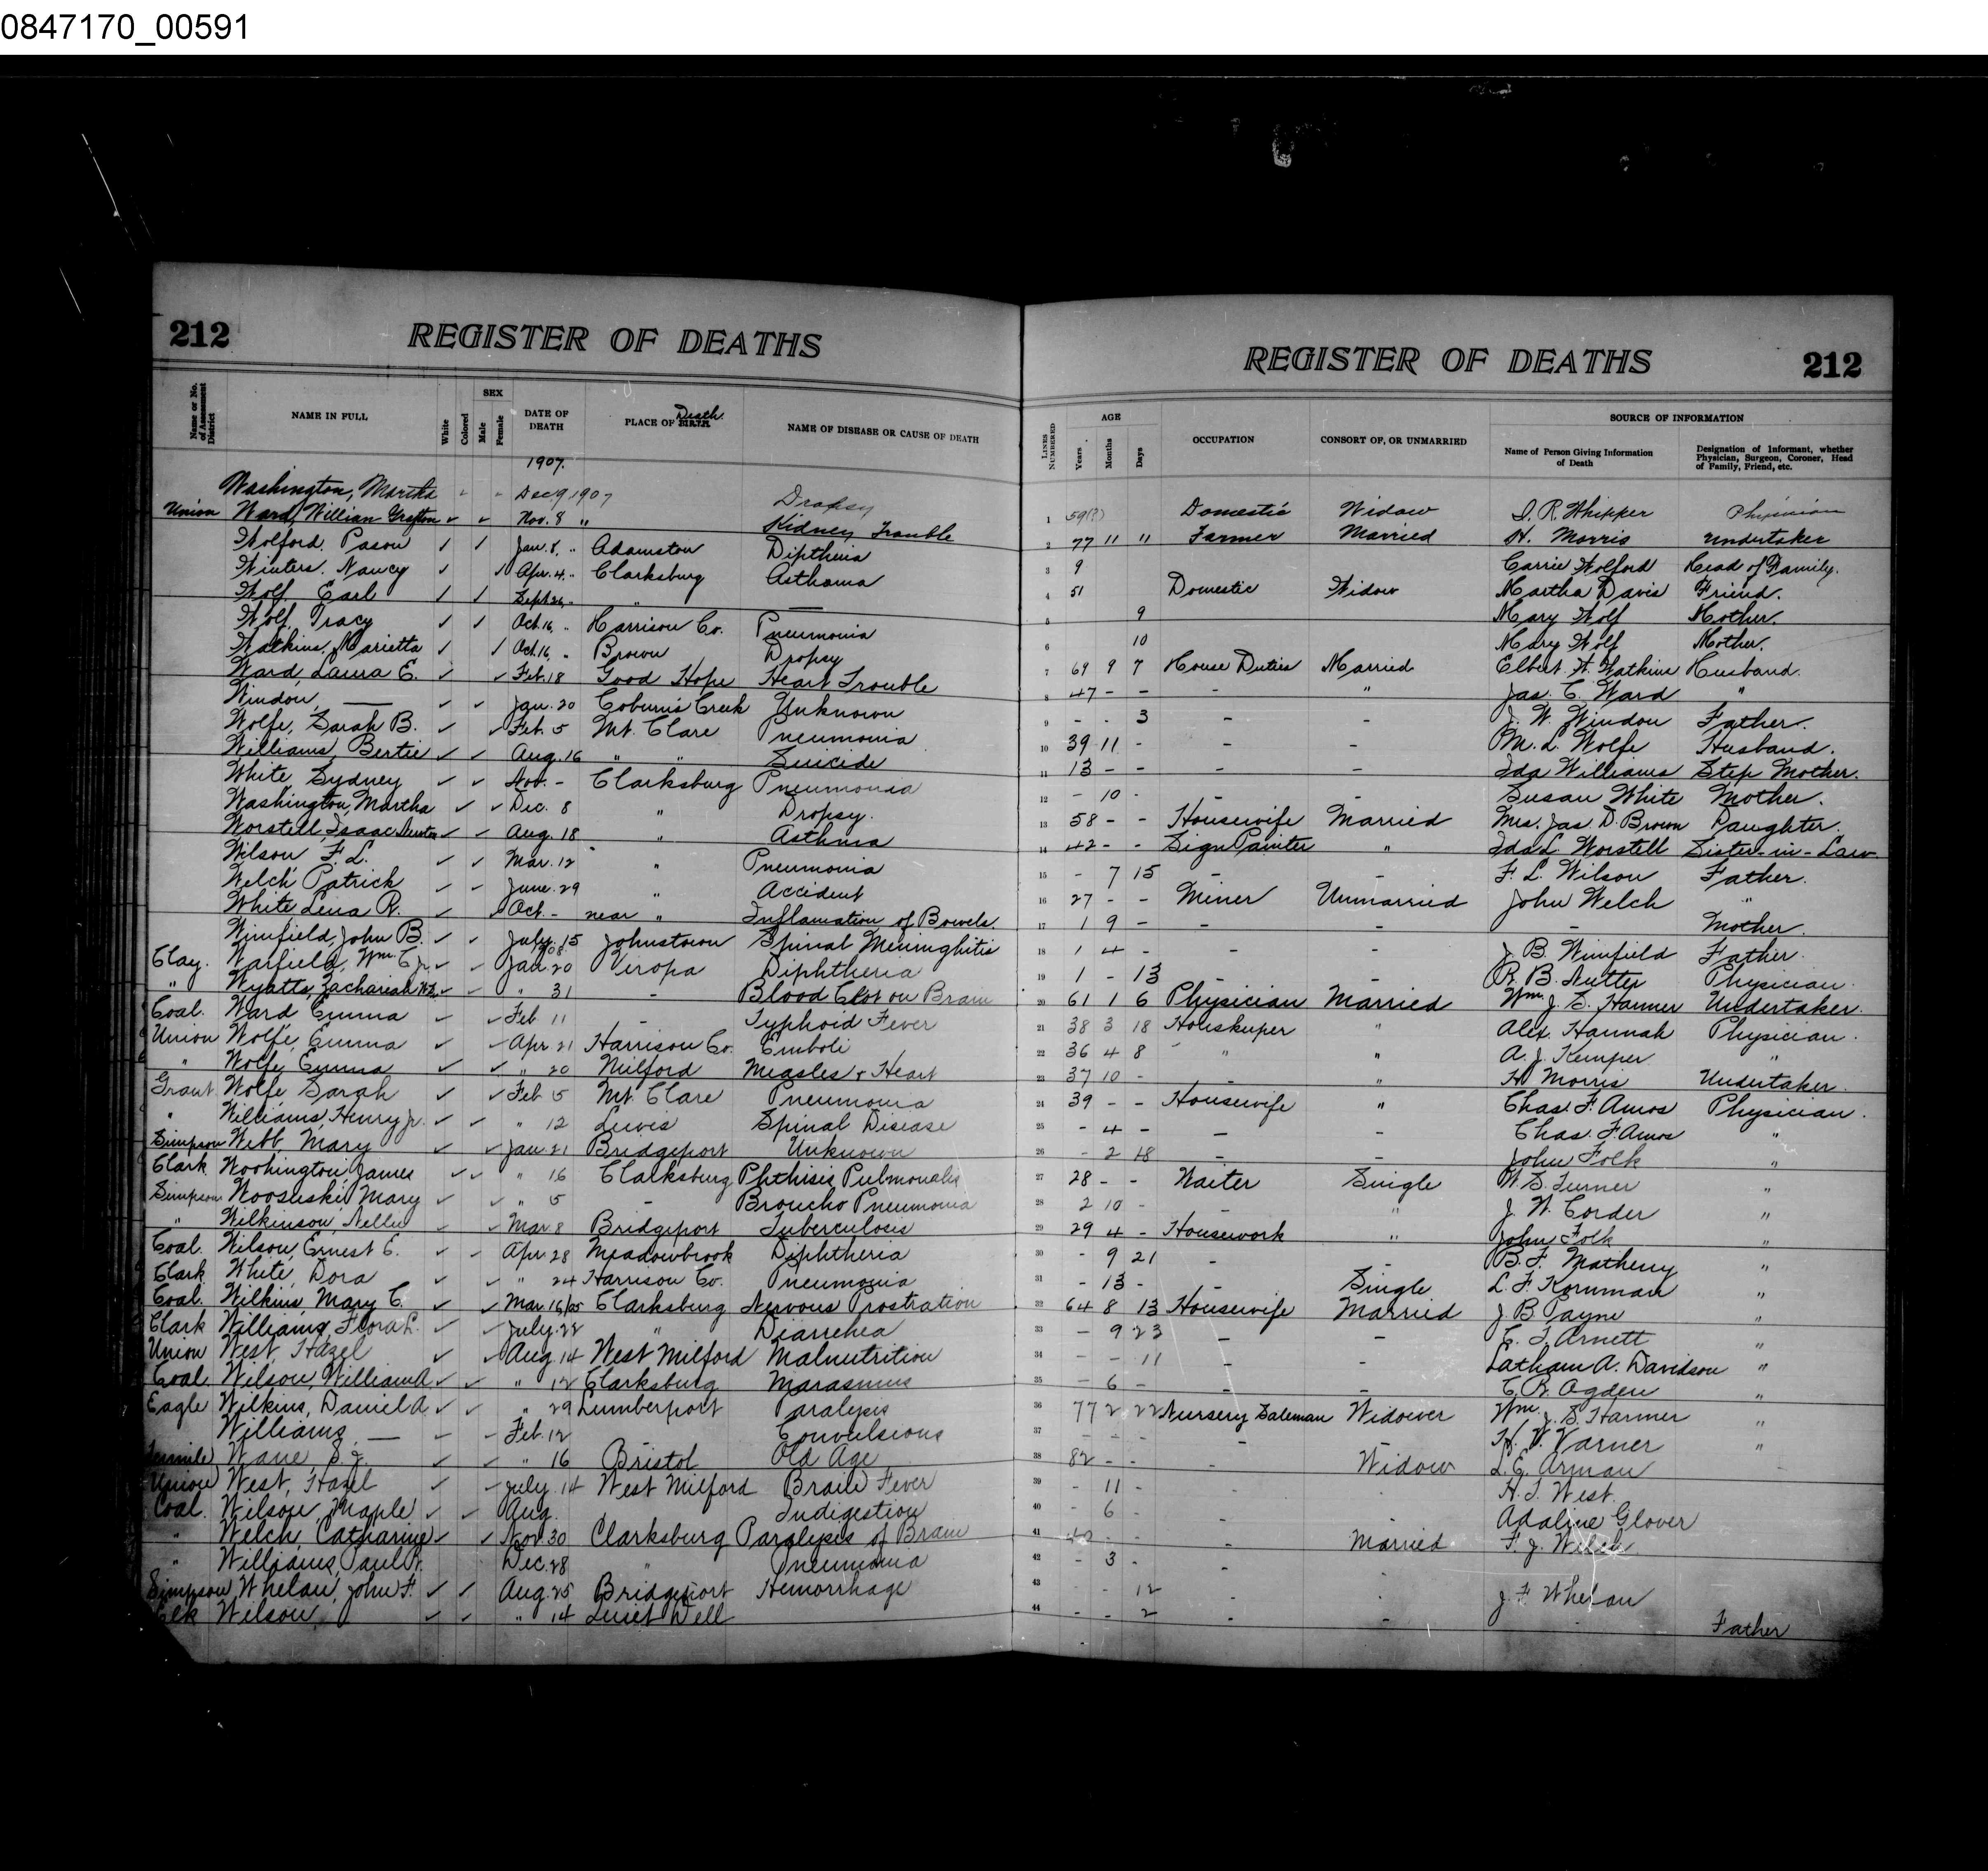 0847170_00591
212 REGISTER OF DEATHS
REGISTER OF DEATHS 212
Name or No. of Assessment District
NAME IN FULL
White
Colored
SEX
Male
Female
DATE OF DEATH
PLACE OF BIRTH Death
NAME OF DISEASE OR CAUSE OF DEATH
LINES NUMBERED
AGE
Years
Months
Days
OCCUPATION
CONSORT OF, OR UNMARRIED
SOURCE OF INFORMATION
Name of Person Giving Information of Death
Designation of Informant, whether Physician, Surgeon, Coroner, Head of Family, Friend, etc.
1907.
Washington, Martha Dec. 9 1907 Dropsy 1 59(?) Domestic Widow I. R. Whipper Physician
Union Ward, Willian Grafton Nov. 8 " Kidney Trouble 2 77 11 " Farmer Married H. Morris Undertaker
Wolford, Pason Jan. 8, " Adamston Diptheria 3 9 Carrie Wolford Head of Family.
Winters, Nancy Apr. 4 " Clarksburg Asthama 4 51 Domestic Widow Martha Davis Friend.
Wolf, Earl Sept 26, " " — 5 9 Mary Wolf Mother.
Wolf, Tracy Oct. 16, " Harrison Co. Pneumonia 6 10 Mary Wolf Mother.
Watkins, Marietta Oct. 16, " Brown Dropsy 7 69 9 7 House Duties Married Elbert W. Watkins Husband.
Ward, Laura E. Feb. 18 Good Hope Heart Trouble 8 47 - - - " Jas. C. Ward "
Windon, — Jan. 20 Coburn's Creek Unknown 9 - - 3 - - J. W. Windon Father.
Wolfe, Sarah B. Feb. 5 Mt. Clare Pneumonia 10 39 11 - - - M. L. Wolfe Husband.
Williams, Bertie Aug. 16 " " Suicide 11 13 - - - - Ida Williams Step Mother.
White, Sydney Nov. - Clarksburg Pneumonia 12 - 10 - - - Susan White Mother.
Washington, Martha Dec. 8 " Dropsy. 13 58 - - Housewife Married Mrs. Jas. D. Brown Daughter.
Worstell, Isaac Newton Aug. 18 " Asthma 14 42 - - Sign Painter " Ida L. Worstell Sister-in-Law
Wilson F. L. Mar. 12 " Pneumonia 15 - 7 15 - - F. L. Wilson Father.
Welch, Patrick June. 29 " Accident 16 27 - - Miner Unmarried John Welch "
White Lena R. Oct. - near " Inflamation of Bowels. 17 1 9 - - - - Mother.
Winfield, John B. July. 15 Johnstown Spinal Meninghitis 18 1 4 - - - J. B. Winfield Father.
Clay. Warfield, Wm. C. Jr. 08 Jan. 20 Viropa Diphtheria 19 1 - 13 - - R. B. Nutter Physician.
" Wyatts, Zachariah " 31 - Blood Clot on Brain 20 61 1 6 Physician Married Wm. J. S. Harmer Undertaker.
Coal. Ward Emma Feb 11 - Typhoid Fever 21 38 3 18 Houskeeper " Alex. Hannah Physician.
Union Wolfe, Emma Apr. 21 Harrison Co. Emboli 22 36 4 8 " " A. J. Kemper "
" Wolfe, Emma " 20 Milford Measles & Heart 23 37 10 - - " H. Morris Undertaker.
Grant Wolfe, Sarah Feb 5 Mt. Clare Pneumonia 24 39 - - Housewife " Chas. F. Amos Physician.
" Williams, Henry Jr. " 12 Lewis Spinal Disease 25 - 4 - - - Chas. F. Amos "
Simpson Webb Mary Jan. 21 Bridgeport Unknown 26 - 2 18 - - John Folk "
Clark Woohington, James " 16 Clarksburg Phthisis Pulmonalis 27 28 - - Waiter Single W. S. Turner "
Simpson Woosuski, Mary " 5 - Broncho Pneumonia 28 2 10 - " J. W. Corder "
" Wilkinson, Nellie Mar 8 Bridgeport Tuberculosis 29 29 4 - Housework " John Folk "
Coal. Wilson, Ernest E. Apr. 28 Meadowbrook Diphtheria 30 - 9 21 - - B. F. Matheny "
Clark White, Dora " 24 Harrison Co. Pneumonia 31 - 13 - - Single L. F. Kornman "
Coal. Wilkins, Mary C. Mar. 16/05 Clarksburg Nervous Prostration 32 64 8 13 Housewife Married J. B. Payne "
Clark Williams, Flora L. July. 22 " Diarrehea 33 - 9 23 - - E. T. Arnett "
Union West, Hazel Aug. 14 West Milford Malnutrition 34 - - 11 - - Latham A. Davidson "
Coal. Wilson, William A. " 12 Clarksburg Marasmus 35 - 6 - - - C. R. Ogden "
Eagle Wilkins, Daniel A. " 29 Lumberport Paralysis 36 77 2 22 Nursery Saleman Widower Wm. J. S. Harmer "
Williams — Feb. 12 Convulsions 37 - - - - H. V. Varner "
Tenmile Wane, S. J. " 16 Bristol Old Age 38 82 - - - Widow L. E. Arman
Union West, Hazel July. 14 West Milford Brain Fever 39 - 11 - - H. T. West.
Coal. Wilson, Maple Aug. Indigestion 40 - 6 - Adaline Glover
" Welch, Catharine Nov 30 Clarksburg Paralysis of Brain 41 - - - Married F. J. Welch
" Williams, Paul Dec. 28 " Pneumonia 42 - 3 - -
Simpson Whelan, John F. Aug. 25 Bridgeport Hemorrhage 43 - 12 - J. F. Whelan
Elk Wilson, " 14 Quiet Dell 44 - - 2 - - - Father